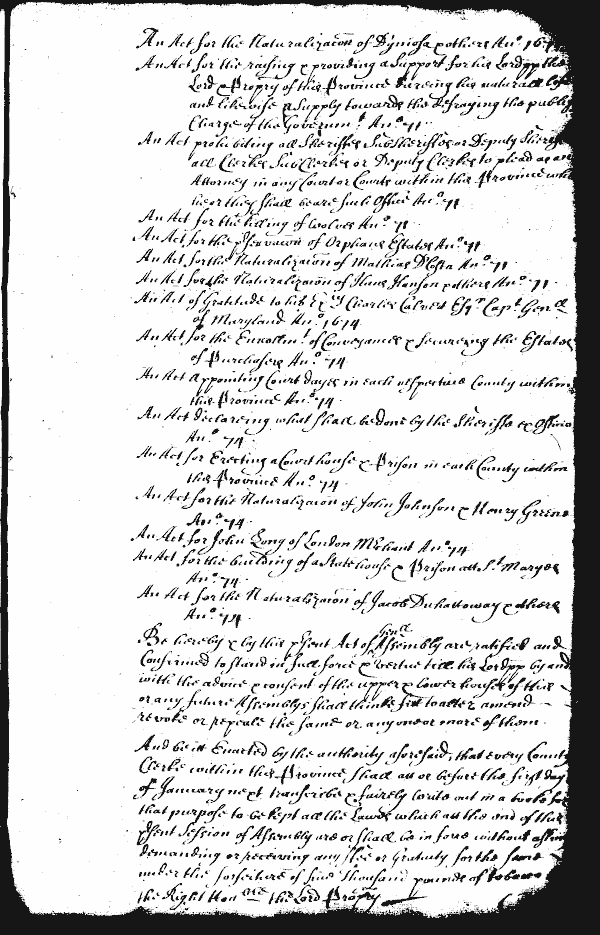 An Act for the Naturalizacon of Dyniosa & others Ano 167
An Act for the raising & providing a Support for his Lordpp the
Lord & Propry of this Province dureing his naturall life
and likewise a Supply towards the Defraying the publiq
Charge of the Governmt Ano 71.
An Act prohibiting all Sheriffes SubSheriffes or Deputy Sheriffs
all Clerkes SubClerkes or Deputy Clerkes to plead as an
Attorney in any Court or Courts within this Province whi
he or they shall beare such Office Ano 71
An Act for the killing of Wolves Ano 71
An Act for the pservacon of Orphans Estates Ano 71
An Act for the Naturalizacon of Mathias DCosta Ano 71
An Act for the Naturalizacon of Hans Hanson & others Ano 71.
An Act of Gratitude to his Exy Charles Calvert Esqr Capt Genll
of Maryland Ano 1674.
An Act for the Enrollmt of Conveyances & Secureing the Estates
of Purchasers Ano 74.
An Act Appointing Court dayes in each respective County within
this Province Ano 74.
An Act declareing what shall be done by the Sheriffs ex Officio
Ano 74.
An Act for Erecting a Courthouse & Prison in each County within
this Province Ano 74.
An Act for the Naturalizacon of John Johnson & Henry Greene
Ano 74.
An Act for John Long of London Mrchant Ano 74
An Act for the building of a Statehouse & Prison att St Maryes
Ano 74.
An Act for the Naturalizacon of Jacob Duhattoway & others
Ano 74.
Be hereby & by this psent Act of Genll Assembly are ratified and
Confirmed to stand in full force & vertue till his Lordpp by and
with the advice & consent of the upper & lower houses of this
or any future Assemblys shall thinke fitt to alter amend
revoke or repeale the same or any one or more of them.
And be itt Enacted by the authority aforesaid, that every County
Clerke within this Province, shall att or before the first day
of January next transcribe & fairely write out in a booke for
that purpose to be kept all the Lawes which att the end of this
psent Session of Assembly are or shall be in force without
demanding or receiving any ffee or Gratuity for the same
under the forfeiture of five thousand pounds of tobacco
the Right Honble the Lord Propry